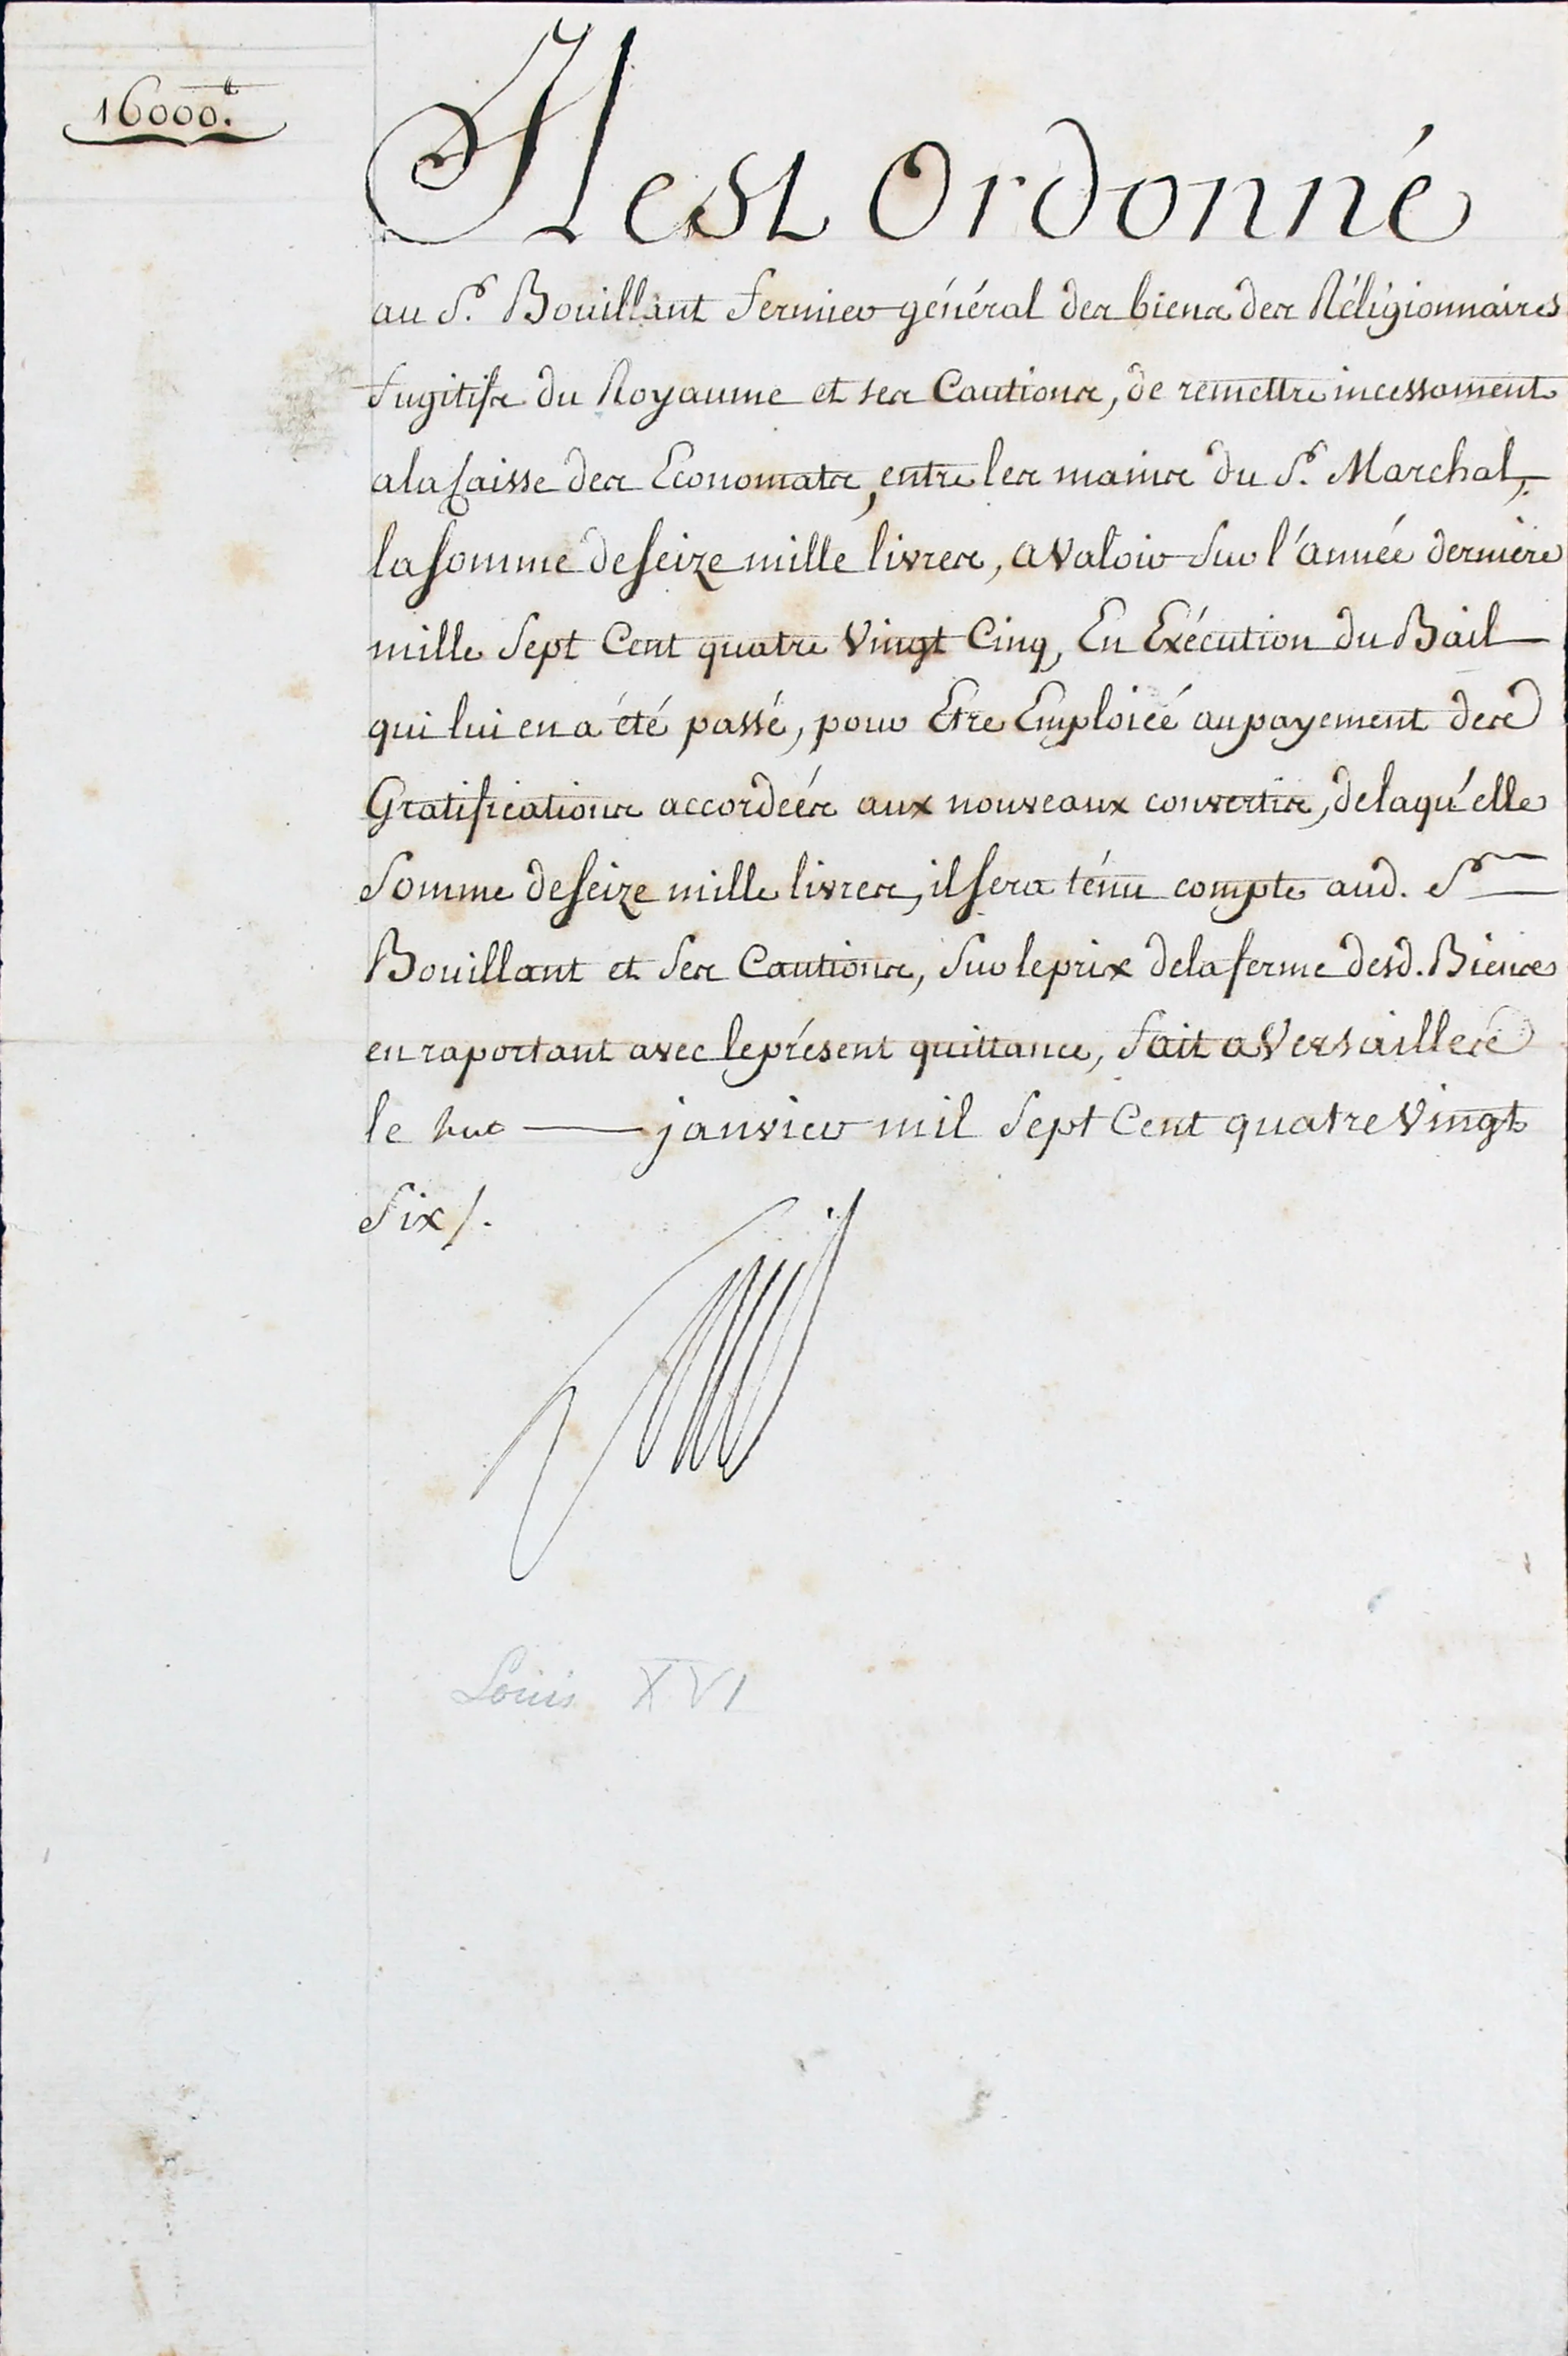 16000.lt
Il est Ordonné
au Sr. Bouillant fermier général des biens des Réligionnaires
fugitifs du Royaume et ses Cautions, de remettre incessament
a la Caisse des Economats, entre les mains du Sr. Marchal,
la somme de seize mille livres, a valoir sur l'année derniere
mille Sept Cent quatre Vingt Cinq, En Exécution du Bail
qui lui en a été passé, pour Etre Emploiéé au payement des
Gratifications accordéés aux nouveaux convertis, de laqu'elle
Somme de seize mille livres, il sera ténu compte aud. Sr
Bouillant et Ses Cautions, Sur le prix de la ferme desd. Biens
en raportant avec le présent quittance, fait a Versailles
le janvier mil Sept Cent quatre Vingt
Six /.
Louis XVI